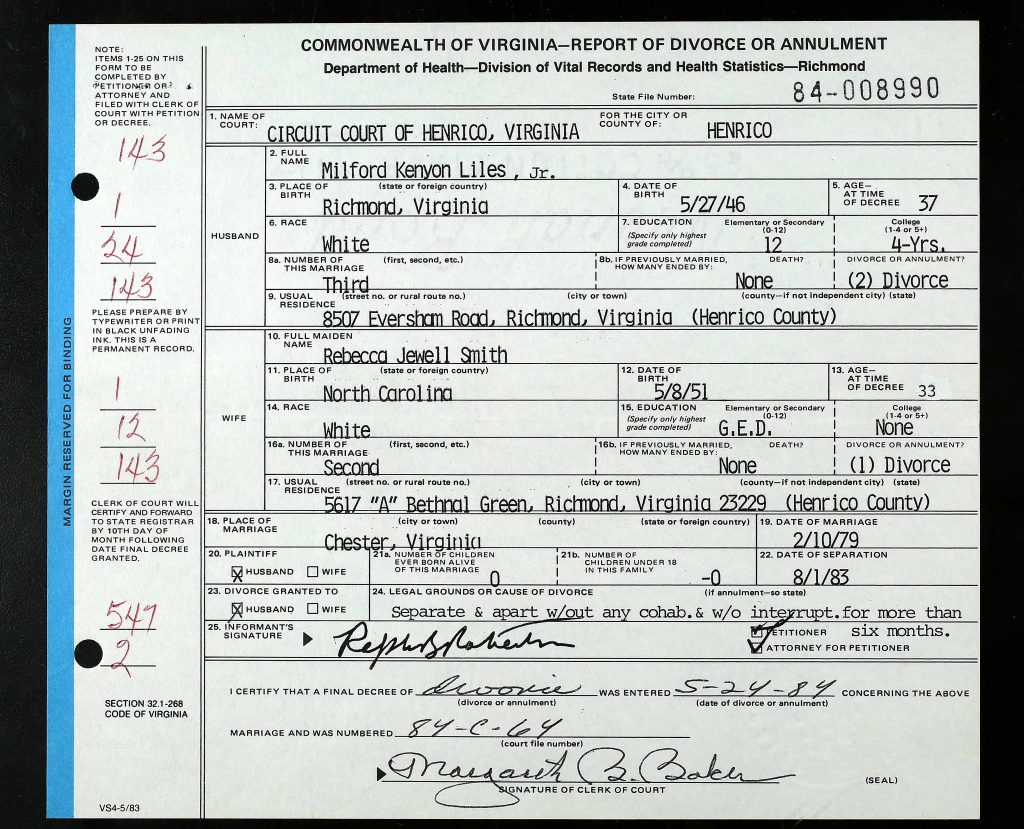 COMMONWEALTH OF VIRGINIA—REPORT OF DIVORCE OR ANNULMENT
Department of Health—Division of Vital Records and Health Statistics—Richmond
State File Number: 84-008990
NOTE:
ITEMS 1-25 ON THIS
FORM TO BE
COMPLETED BY
PETITIONER OR
ATTORNEY AND
FILED WITH CLERK OF
COURT WITH PETITION
OR DECREE.
143
1
24
143
PLEASE PREPARE BY
TYPEWRITER OR PRINT
IN BLACK UNFADING
INK. THIS IS A
PERMANENT RECORD.
1
12
143
CLERK OF COURT WILL
CERTIFY AND FORWARD
TO STATE REGISTRAR
BY 10TH DAY OF
MONTH FOLLOWING
DATE FINAL DECREE
GRANTED.
547
2
SECTION 32.1-268
CODE OF VIRGINIA
VS4-5/83
MARGIN RESERVED FOR BINDING
1. NAME OF COURT: CIRCUIT COURT OF HENRICO, VIRGINIA FOR THE CITY OR COUNTY OF: HENRICO
HUSBAND
2. FULL NAME Milford Kenyon Liles, Jr.
3. PLACE OF BIRTH (state or foreign country) Richmond, Virginia 4. DATE OF BIRTH 5/27/46 5. AGE— AT TIME OF DECREE 37
6. RACE White 7. EDUCATION (Specify only highest grade completed) Elementary or Secondary (0-12) 12 College (1-4 or 5+) 4-Yrs.
8a. NUMBER OF THIS MARRIAGE (first, second, etc.) Third 8b. IF PREVIOUSLY MARRIED, HOW MANY ENDED BY: DEATH? None DIVORCE OR ANNULMENT? (2) Divorce
9. USUAL RESIDENCE (street no. or rural route no.) (city or town) (county—if not independent city) (state)
8507 Eversham Road, Richmond, Virginia (Henrico County)
WIFE
10. FULL MAIDEN NAME Rebecca Jewell Smith
11. PLACE OF BIRTH (state or foreign country) North Carolina 12. DATE OF BIRTH 5/8/51 13. AGE— AT TIME OF DECREE 33
14. RACE White 15. EDUCATION (Specify only highest grade completed) Elementary or Secondary (0-12) G.E.D. College (1-4 or 5+) None
16a. NUMBER OF THIS MARRIAGE (first, second, etc.) Second 16b. IF PREVIOUSLY MARRIED, HOW MANY ENDED BY: DEATH? None DIVORCE OR ANNULMENT? (1) Divorce
17. USUAL RESIDENCE (street no. or rural route no.) (city or town) (county—if not independent city) (state)
5617 "A" Bethnal Green, Richmond, Virginia 23229 (Henrico County)
18. PLACE OF MARRIAGE (city or town) (county) (state or foreign country) Chester, Virginia 19. DATE OF MARRIAGE 2/10/79
20. PLAINTIFF X HUSBAND WIFE 21a. NUMBER OF CHILDREN EVER BORN ALIVE OF THIS MARRIAGE 0 21b. NUMBER OF CHILDREN UNDER 18 IN THIS FAMILY -0 22. DATE OF SEPARATION 8/1/83
23. DIVORCE GRANTED TO X HUSBAND WIFE 24. LEGAL GROUNDS OR CAUSE OF DIVORCE (if annulment—so state)
Separate & apart w/out any cohab.& w/o interrupt.for more than
six months.
25. INFORMANT'S SIGNATURE PETITIONER
ATTORNEY FOR PETITIONER
I CERTIFY THAT A FINAL DECREE OF divorce WAS ENTERED 5-24-84 CONCERNING THE ABOVE
(divorce or annulment) (date of divorce or annulment)
MARRIAGE AND WAS NUMBERED 84-C-64
(court file number)
Margaret B. Baker
SIGNATURE OF CLERK OF COURT (SEAL)